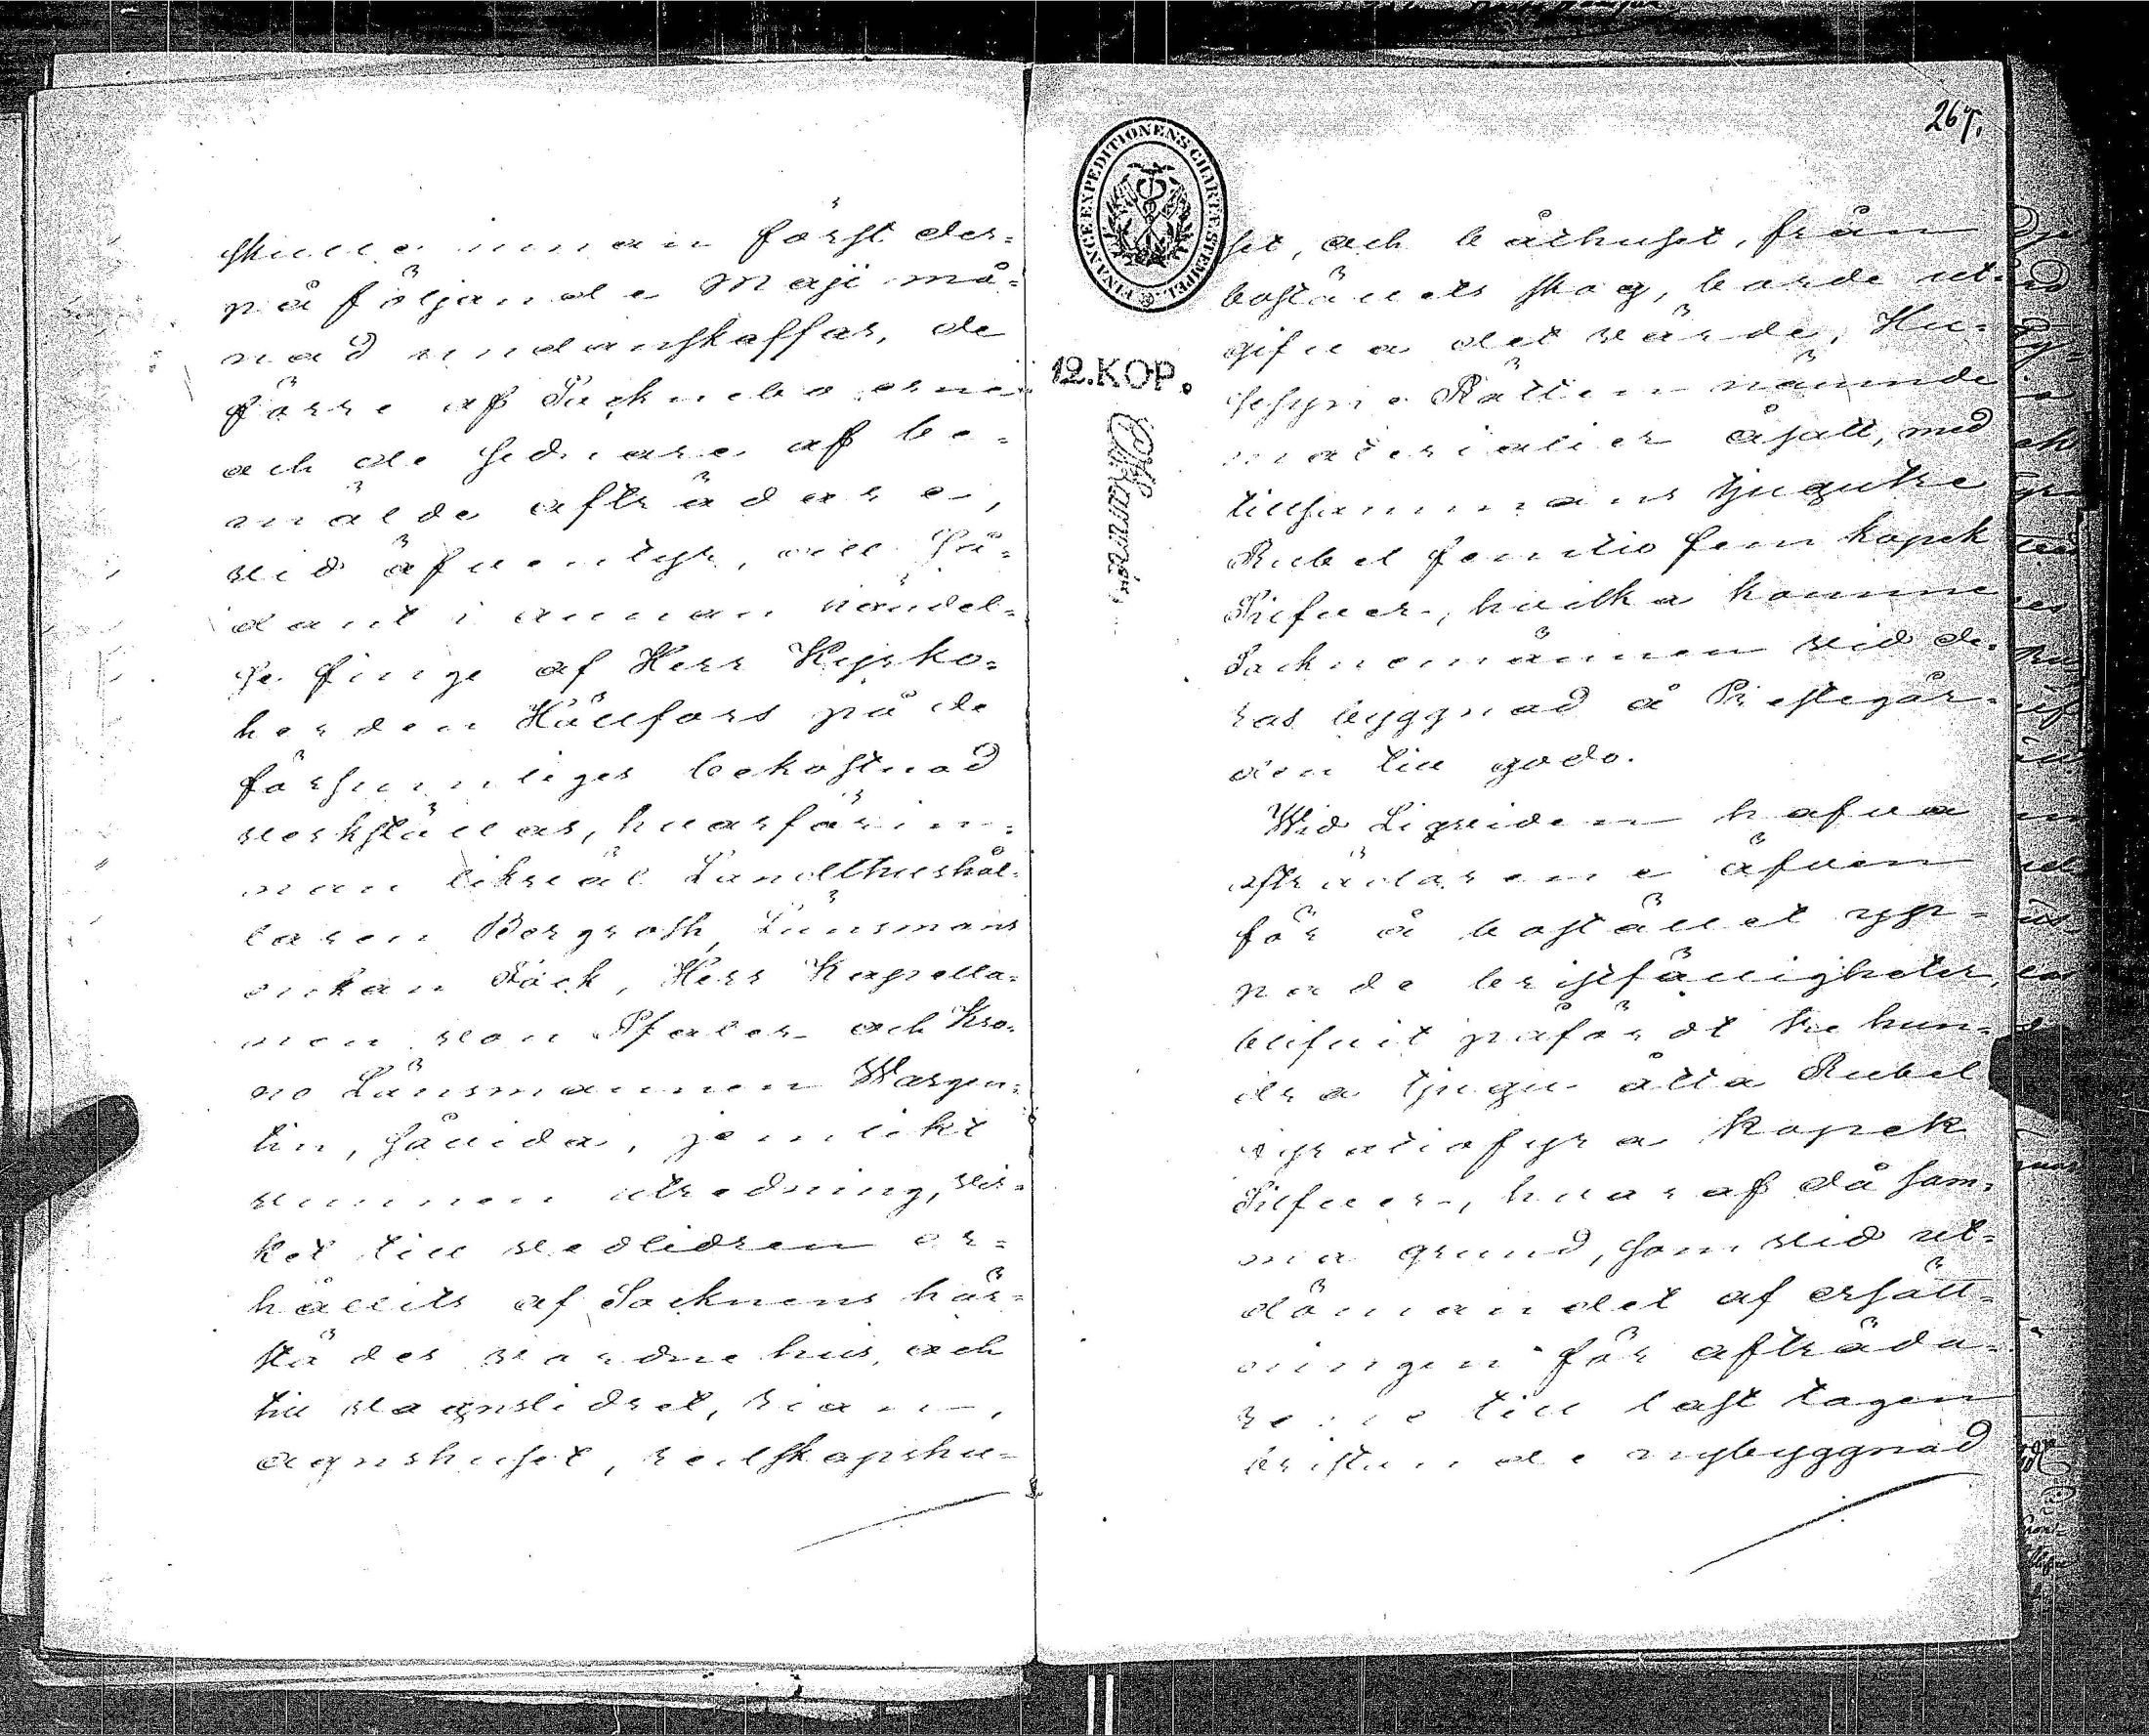 skulle innan först der-
på följande Maji må-
nad undanskaffas, de
förre af Sockneboerne
och de sednare af be-
mälde afträdare,
vid äfventyr, att så-
dant i annan händel-
se finge af Herr Kyrko-
herden Hällfors på de
försumliges bekostnad
verkställas, hvarförin-
nan likväl Landthushål-
laren Bergroth, Länsmans
enkan Höck, Herr Kapella-
nen von Pfaler och Kro-
no Länsmannen Wargen-
tin, såvida, jemlikt
vunnen utredning, vir-
ket till vedlidren er-
hållits af Socknens här-
städes varande hus, och
till vagnslidret, rian,
agnshuset, redskapshu-
267.
FINANCE EXPEDITIONENS CHARTÆ STEMPEL
12. KOP.
set, och båthuset, från
boställets skog, borde ut-
gifva det värde, Hu-
sesyns Rätten nämnde
materialier åsatt, med
tillsammans tjugutre
Rubel femtio fem kopek
Silfver, hvilka komme
Socknemännen vid de-
ras byggnad å Prestegår-
den till godo.
Wid Liqviden hafva
afträdarene äfven
för å bostället upp-
nade bristfälligheter,
blifvit påfördt tre hun-
dra tjugu åtta Rubel
nyratiofyra kopek
Silfver, hvaraf då sam-
ma grund, som vid ut-
dömandet af ersätt-
ningen för afträda-
rene till last tagen
bristande nybyggnad